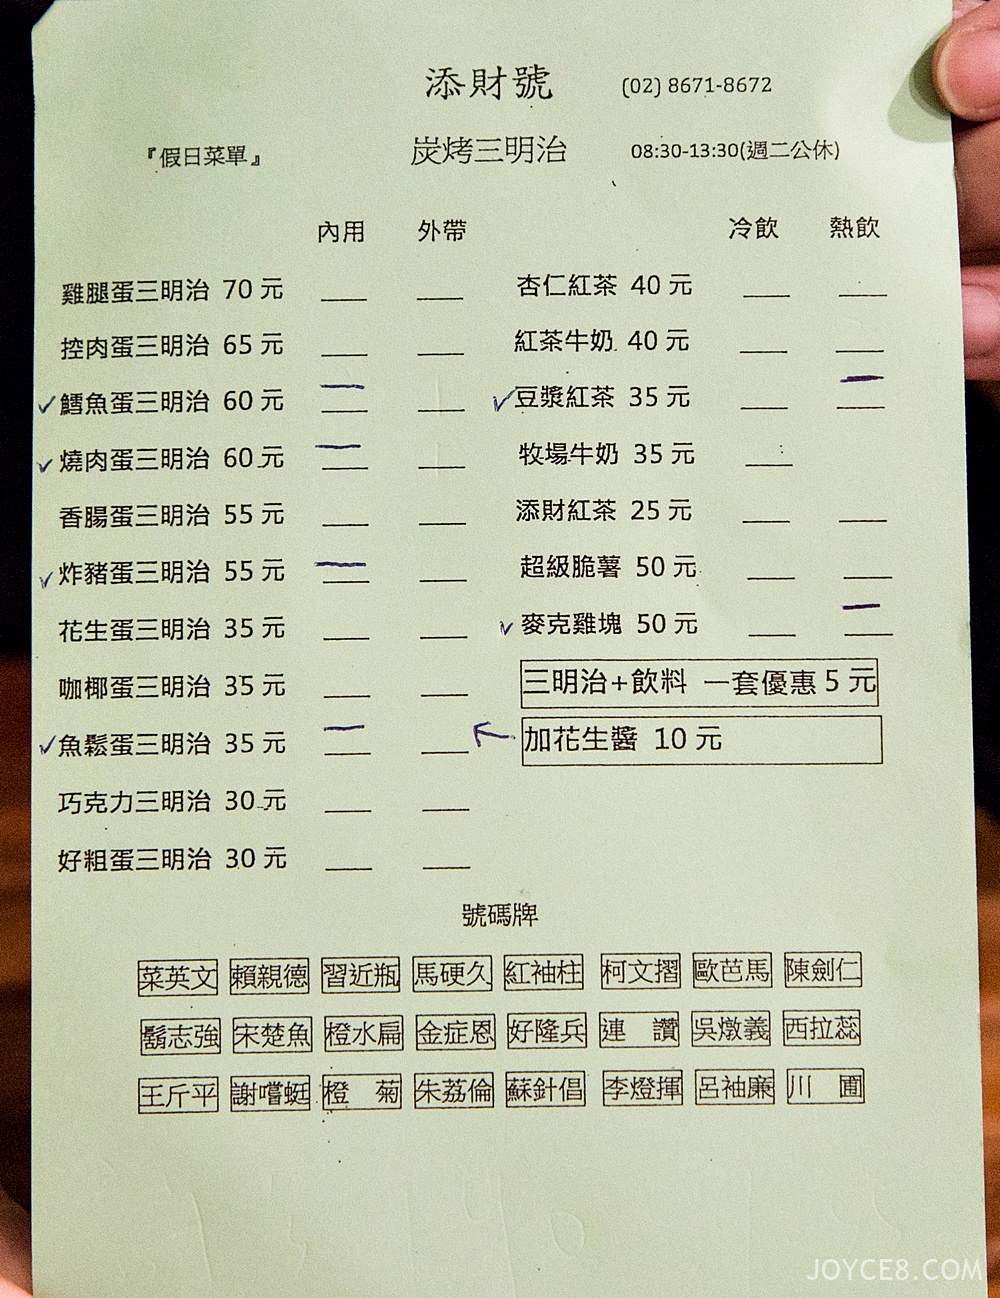 添財號 (02) 8671-8672
『假日菜單』 炭烤三明治 08:30-13:30(週二公休)
內用 外帶 冷飲 熱飲
雞腿蛋三明治 70 元 杏仁紅茶 40 元
控肉蛋三明治 65 元 紅茶牛奶 40 元
鱈魚蛋三明治 60 元 豆漿紅茶 35 元
燒肉蛋三明治 60 元 牧場牛奶 35 元
香腸蛋三明治 55 元 添財紅茶 25 元
炸豬蛋三明治 55 元 超級脆薯 50 元
花生蛋三明治 35 元 麥克雞塊 50 元
咖椰蛋三明治 35 元 三明治+飲料 一套優惠 5 元
魚鬆蛋三明治 35 元 加花生醬 10 元
巧克力三明治 30 元
好粗蛋三明治 30 元
號碼牌
菜英文 賴親德 習近瓶 馬硬久 紅袖柱 柯文摺 歐芭馬 陳劍仁
鬍志強 宋楚魚 橙水扁 金症恩 好隆兵 連 讚 吳燉義 西拉蕊
王斤平 謝嚐蜓 橙 菊 朱荔倫 蘇針倡 李燈揮 呂袖廉 川 圃
JOYCE8.COM